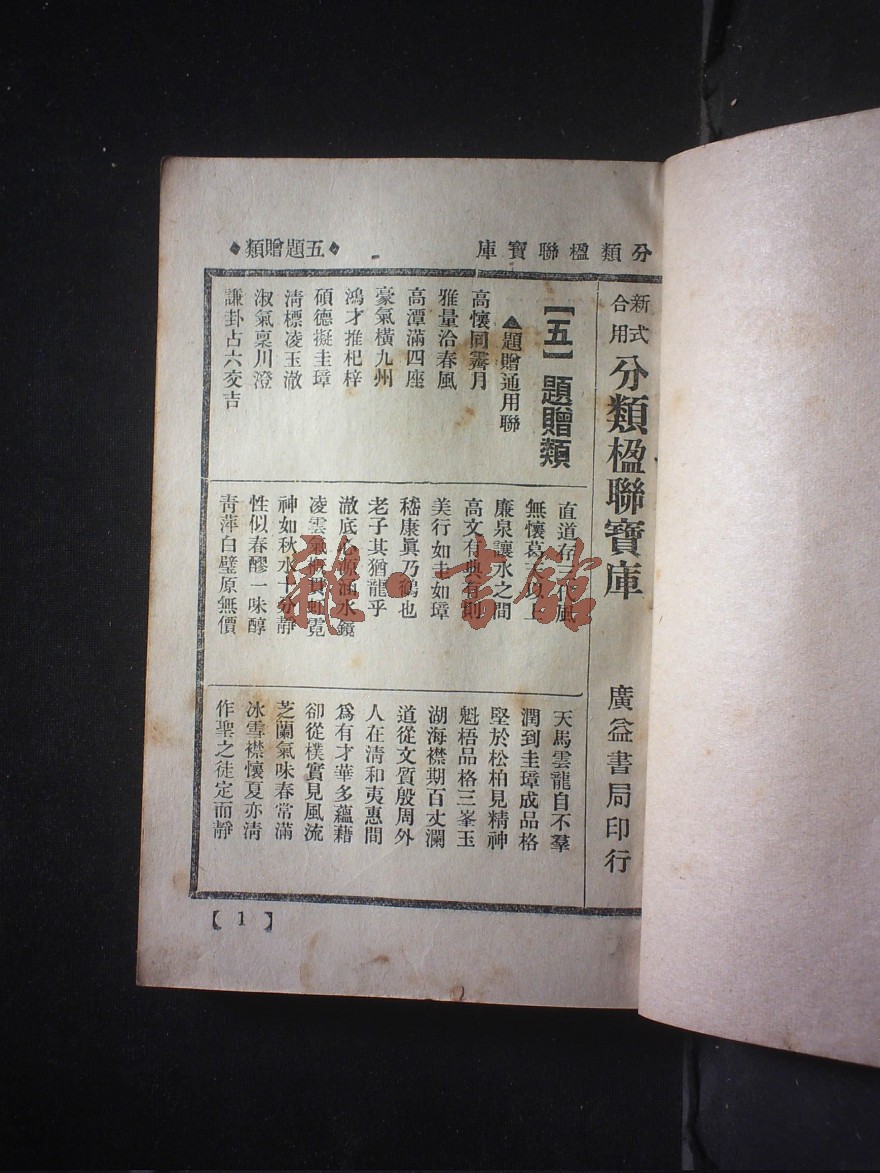 分類楹聯寶庫
◆五題贈類◆
新式
合用
分類楹聯寶庫
廣益書局印行
【五】題贈類
▲題贈通用聯
高懷同霽月
雅量洽春風
高潭滿四座
豪氣橫九州
鴻才推杞梓
碩德擬圭璋
清標凌玉澈
淑氣稟川澄
謙卦占六爻吉
直道存三代風
無懷葛天以上
廉泉讓水之間
高文有典有則
美行如圭如璋
嵇康眞乃鶴也
老子其猶龍乎
澈底心源涵水鏡
凌雲氣概貫虹霓
神如秋水十分靜
性似春醪一味醇
靑萍白璧原無價
天馬雲龍自不羣
潤到圭璋成品格
堅於松柏見精神
魁梧品格三峯玉
湖海襟期百丈瀾
道從文質殷周外
人在淸和夷惠間
爲有才華多蘊藉
卻從樸實見風流
芝蘭氣味春常滿
冰雪襟懷夏亦淸
作聖之徒定而靜
【1】
雜·書館